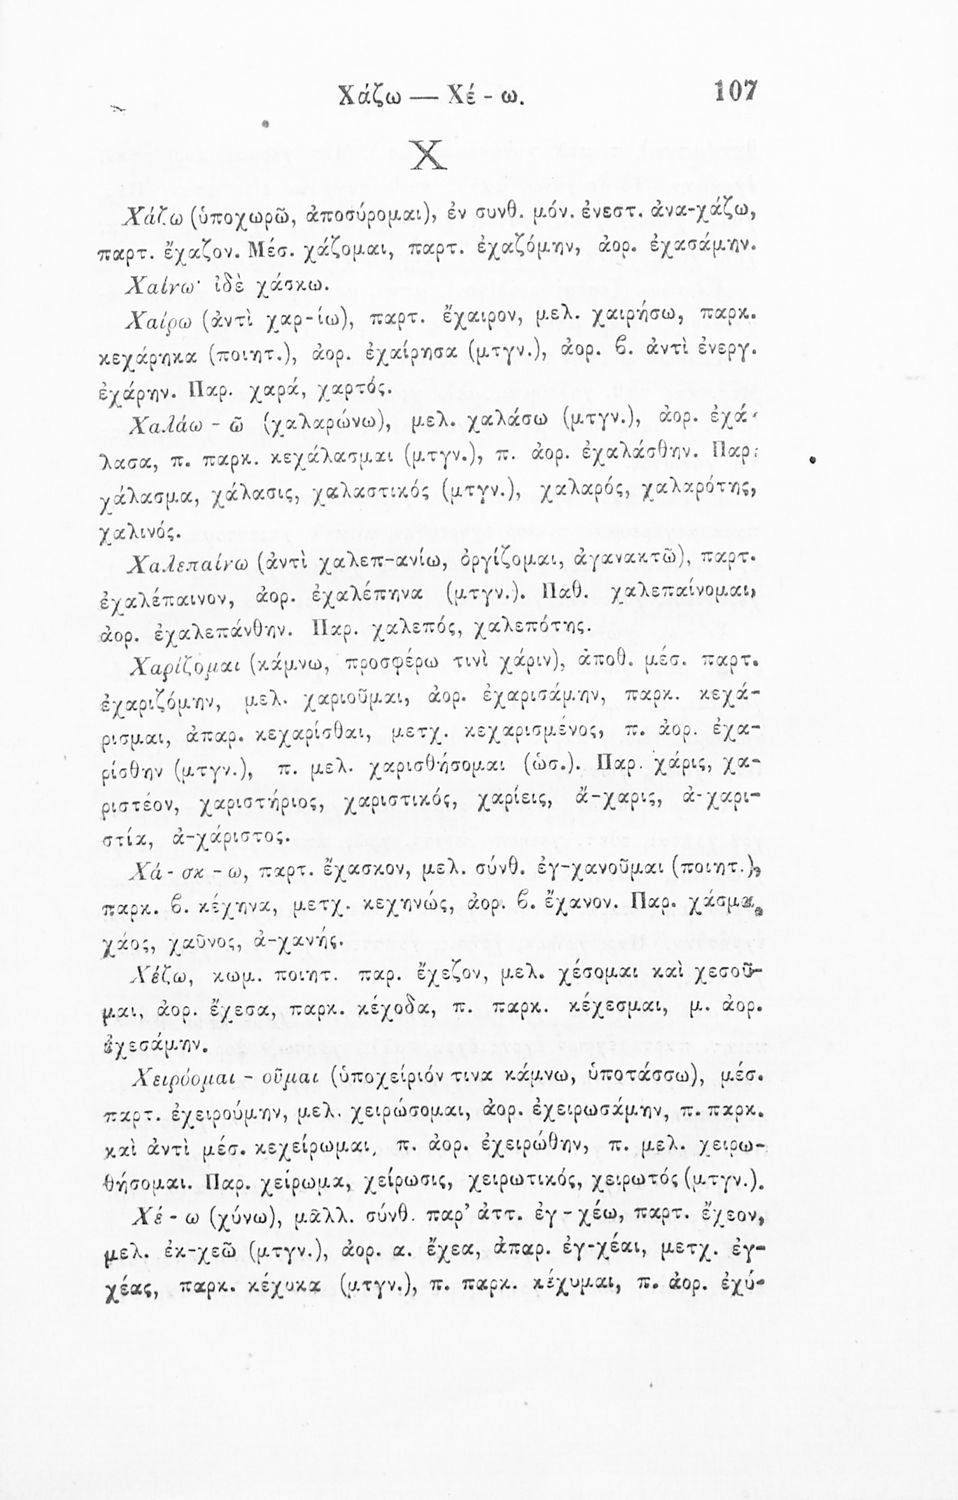 Χάζω — Χέ - ω. 107
Χ
Χάζω (ὑποχωρῶ, ἀποσύρομαι), ἐν συνθ. μόν. ἐνεστ. ἀνα-χάζω,
παρτ. ἔχαζον. Μέσ. χάζομαι, παρτ. ἐχαζόμην, ἀορ. ἐχασάμην.
Χαίνω· ἰδὲ χάσκω.
Χαίρω (ἀντὶ χαρ-ίω), παρτ. ἔχαιρον, μελ. χαιρήσω, παρκ.
κεχάρηκα (ποιητ.), ἀορ. ἐχαίρησα (μτγν.), ἀορ. ϐ. ἀντὶ ἐνεργ.
ἐχάρην. Παρ. χαρά, χαρτός.
Χαλάω - ῶ (χαλαρώνω), μελ. χαλάσω (μτγν.), ἀορ. ἐχά-
λασα, π. παρκ. κεχάλασμαι (μτγν.), π. ἀορ. ἐχαλάσθην. Παρ.
χάλασμα, χάλασις, χαλαστικός (μτγν.), χαλαρός, χαλαρότης,
χαλινός.
Χαλεπαίνω (ἀντὶ χαλεπ-ανίω, ὀργίζομαι, ἀγανακτῶ), παρτ.
ἐχαλέπαινον, ἀορ. ἐχαλέπηνα (μτγν.). Παθ. χαλεπαίνομαι,
ἀορ. ἐχαλεπάνθην. Παρ. χαλεπός, χαλεπότης.
Χαρίζομαι (κάμνω, προσφέρω τινὶ χάριν), ἀποθ. μέσ. παρτ.
ἐχαριζόμην, μελ. χαριοῦμαι, ἀορ. ἐχαρισάμην, παρκ. κεχά-
ρισμαι, ἀπαρ. κεχαρίσθαι, μετχ. κεχαρισμένος, π. ἀορ. ἐχα-
ρίσθην (μτγν.), π. μελ. χαρισθήσομαι (ὡσ.). Παρ. χάρις, χα-
ριστέον, χαριστήριος, χαριστικός, χαρίεις, ἄ-χαρις, ἀ-χαρι-
στία, ἀ-χάριστος.
Χά - σκ - ω, παρτ. ἔχασκον, μελ. σύνθ. ἐγ-χανοῦμαι (ποιητ.),
παρκ. ϐ. κέχηνα, μετχ. κεχηνώς, ἀορ. ϐ. ἔχανον. Παρ. χάσμα,
χάος, χαῦνος, ἀ-χανής.
Χέζω, κωμ. ποιητ. παρ. ἔχεζον, μελ. χέσομαι καὶ χεσοῦ-
μαι, ἀορ. ἔχεσα, παρκ. κέχοδα, π. παρκ. κέχεσμαι, μ. ἀορ.
ἐχεσάμην.
Χειρόομαι - οῦμαι (ὑποχείριόν τινα κάμνω, ὑποτάσσω), μέσ.
παρτ. ἐχειρούμην, μελ. χειρώσομαι, ἀορ. ἐχειρωσάμην, π. παρκ.
καὶ ἀντὶ μέσ. κεχείρωμαι, π. ἀορ. ἐχειρώθην, π. μελ. χειρω-
θήσομαι. Παρ. χείρωμα, χείρωσις, χειρωτικός, χειρωτός (μτγν.).
Χέ - ω (χύνω), μᾶλλ. σύνθ. παρ' ἀττ. ἐγ - χέω, παρτ. ἔχεον,
μελ. ἐκ-χεῶ (μτγν.), ἀορ. α. ἔχεα, ἀπαρ. ἐγ-χέαι, μετχ. ἐγ-
χέας, παρκ. κέχυκα (μτγν.), π. παρκ. κέχυμαι, π. ἀορ. ἐχύ-